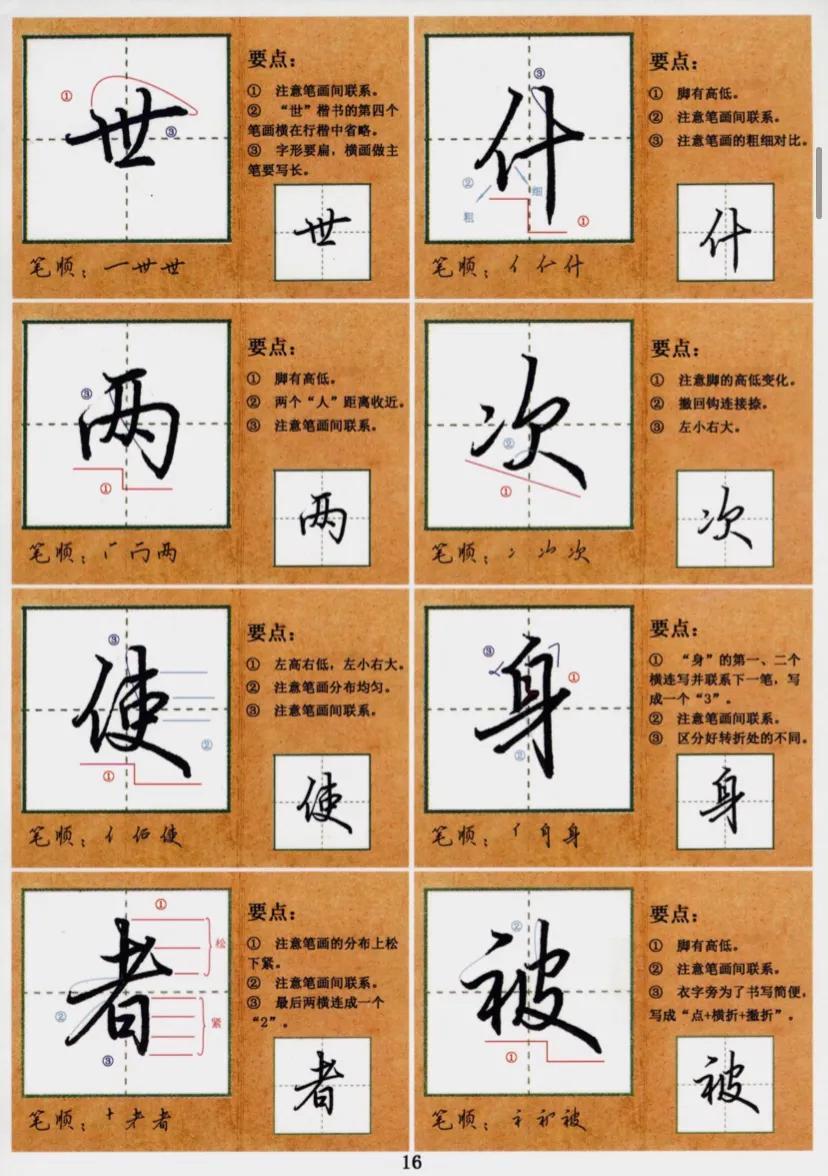 ①
③
世
要点：
① 注意笔画间联系。
② “世”楷书的第四个
笔画横在行楷中省略。
③ 字形要扁，横画做主
笔要写长。
世
笔顺：一 世 世
③
什
②
粗
细
①
要点：
① 脚有高低。
② 注意笔画间联系。
③ 注意笔画的粗细对比。
什
笔顺：亻 什
③
两
①
要点：
① 脚有高低。
② 两个“人”距离收近。
③ 注意笔画间联系。
两
笔顺：两
次
②
①
要点：
① 注意脚的高低变化。
② 撇回钩连接捺。
③ 左小右大。
次
笔顺：次
③
使
②
①
要点：
① 左高右低，左小右大。
② 注意笔画分布均匀。
③ 注意笔画间联系。
使
笔顺：亻 使
③
身
①
②
要点：
① “身”的第一、二个
横连写并联系下一笔，写
成一个“3”。
② 注意笔画间联系。
③ 区分好转折处的不同。
身
笔顺：身
①
者
松
②
紧
③
要点：
① 注意笔画的分布上松
下紧。
② 注意笔画间联系。
③ 最后两横连成一个
“2”。
者
笔顺：者
②
被
①
要点：
① 脚有高低。
② 注意笔画间联系。
③ 衣字旁为了书写简便，
写成“点+横折+撇折”。
被
笔顺：被
16